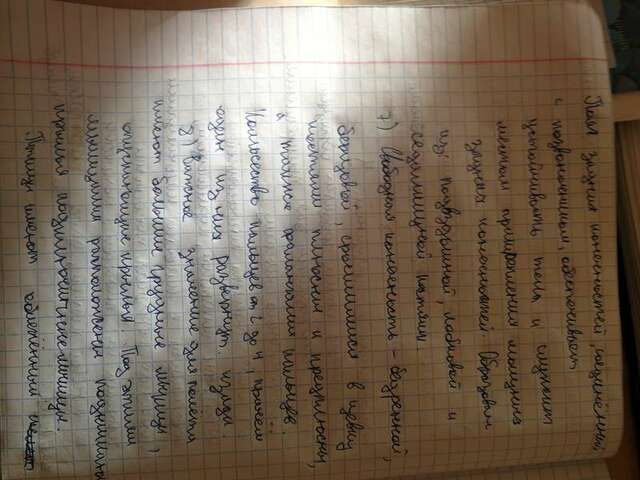 Пояс задних конечностей, соединённый
с позвоночником, обеспечивает
устойчивость тела и служит
местом прикрепления мощных
задних конечностей. Образован
из подвздошной, лобковой и
седалищной костей.
7) Свободная конечность - бедренной,
берцовой, сросшимися в цевку
костями плюсны и предплюсны,
а также фалангами пальцев.
Количество пальцев от 2 до 4, причём
один из них развёрнут назад.
8) Важное значение для полёта
имеют большие грудные мышцы,
опускающие крылья. Под этими
мышцами расположены поднимающие
крылья подключичные мышцы.
Птицы имеют обособленный